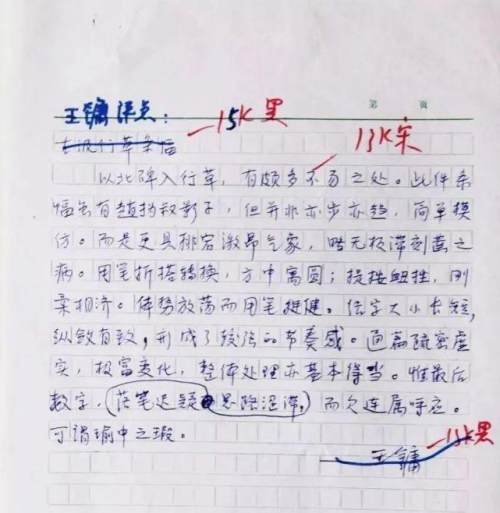 第 页
王镛评点：
15K黑
13K宋
以北碑入行草，有颇多不易之处。此件条
幅虽有赵扔叔影子，但并非亦步亦趋，简单模
仿。而是更具排宕激昂气象，略无板滞刻画之
病。用笔折搭转换，方中寓圆；提按 ，刚
柔相济。体势放荡而用笔挺健。结字大小长短，
纵敛有致，形成了较强的节奏感。通篇疏密虚
实，极富变化，整体处理亦基本得当。惟最后
数字，落笔迟疑 涩滞，而欠连属呼应。
可谓瑜中之瑕。
王镛
13K黑